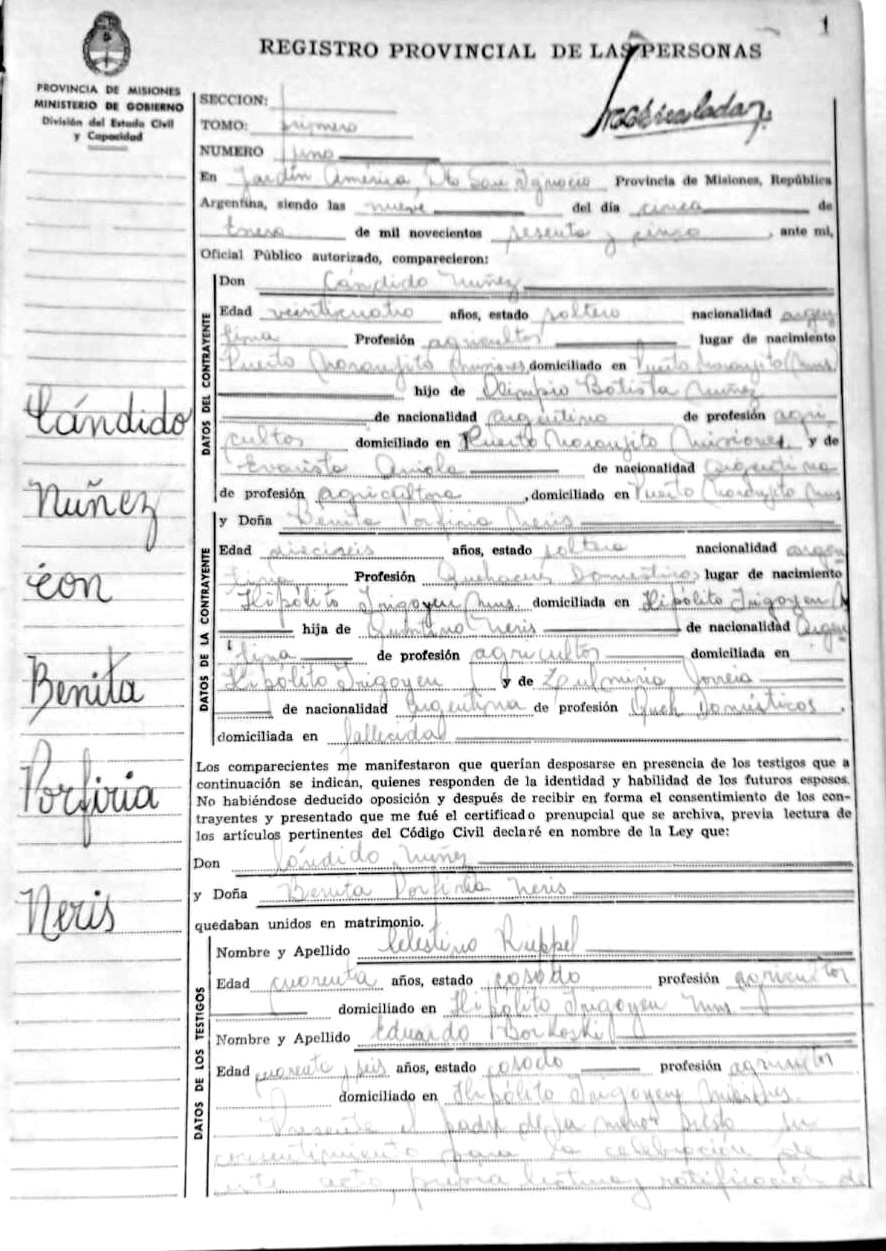 1
REGISTRO PROVINCIAL DE LAS PERSONAS
PROVINCIA DE MISIONES
MINISTERIO DE GOBIERNO
División del Estado Civil
y Capacidad
SECCION:
TOMO: primero
NUMERO uno
En Jardín América, Dto San Ignacio Provincia de Misiones, República
Argentina, siendo las nueve del día cinco de
Enero de mil novecientos sesenta y cinco, ante mi,
Oficial Público autorizado, comparecieron:
DATOS DEL CONTRAYENTE
Don Cándido Nuñez
Edad veinticuatro años, estado soltero nacionalidad argen
tina Profesión agricultor lugar de nacimiento
Puerto Naranjito Misiones, domiciliado en Puerto Naranjito (Mnes
hijo de Olimpio Botista Nuñez
de nacionalidad argentino de profesión agri
cultor domiciliado en Puerto Naranjito Misiones y de
Evarista de nacionalidad argentina
de profesión agricultora, domiciliado en Puerto Naranjito Mnes
DATOS DE LA CONTRAYENTE
y Doña Benita Porfiria Neris
Edad dieciseis años, estado soltera nacionalidad argen
tina Profesión Quehaceres Domesticos lugar de nacimiento
Hipólito Irigoyen Mnes. domiciliada en Hipólito Irigoyen
hija de Quintino Neris de nacionalidad Argen
tina de profesión agricultor domiciliada en
Hipólito Irigoyen y de Zulmiria
de nacionalidad argentina de profesión Queh Domésticos.
domiciliada en fallecida
Los comparecientes me manifestaron que querían desposarse en presencia de los testigos que a
continuación se indican, quienes responden de la identidad y habilidad de los futuros esposos.
No habiéndose deducido oposición y después de recibir en forma el consentimiento de los con-
trayentes y presentado que me fué el certificado prenupcial que se archiva, previa lectura de
los artículos pertinentes del Código Civil declaré en nombre de la Ley que:
Don Cándido Nuñez
y Doña Benita Porfiria Neris
quedaban unidos en matrimonio.
DATOS DE LOS TESTIGOS
Nombre y Apellido Celestino Ruppel
Edad cuarenta años, estado casado profesión agricultor
domiciliado en Hipólito Irigoyen Mnes
Nombre y Apellido Eduardo Borkoski
Edad cuarenta y seis años, estado casado profesión agricultor
domiciliado en Hipólito Irigoyen Misiones.
Presente el padre de la menor presto su
consentimiento para la celebración de
este acto, previa lectura y ratificación de
Cándido
Nuñez
con
Benita
Porfiria
Neris